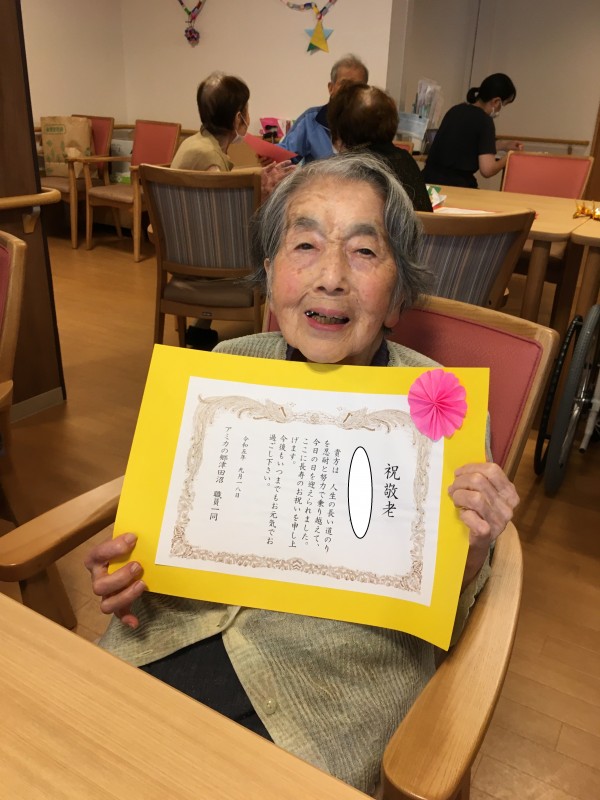 祝敬老
貴方は 人生の長い道のり
を忍耐と努力で乗り越えて、
今日の日を迎えられました。
ここに長寿のお祝いを申し上
げます。
今後もいつまでもお元気でお
過ごし下さい。
令和五年 九月一八日
アミカの郷津田沼 職員一同